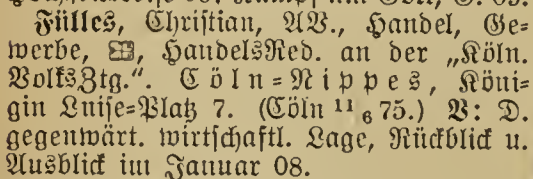 Fülles, Christian, AV., Handel, Ge-
werbe, HandelsRed. an der „Köln.
VolksZtg.“. Cöln-Nippes, Köni-
gin Luise-Platz 7. (Cöln 11 6 75.) V: D.
gegenwärt. wirtschaftl. Lage, Rückblick u.
Ausblick im Januar 08.